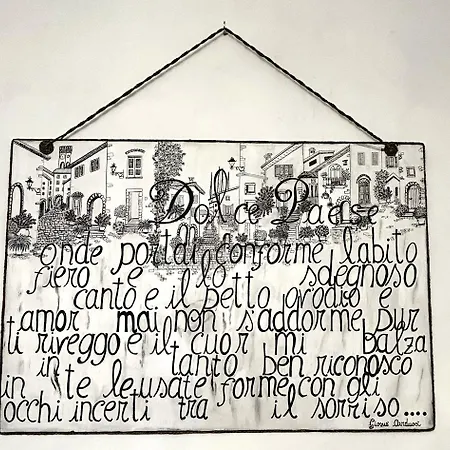 Dolce Paese
onde portai conforme labito
fiero e lo sdegnoso
canto e il petto ov'odio e
amor mai non s'addorme pur
ti riveggo e il cuor mi balza
in tanto ben riconosco
in te le usate forme con gli
occhi incerti tra il sorriso....
Giosuè Carducci